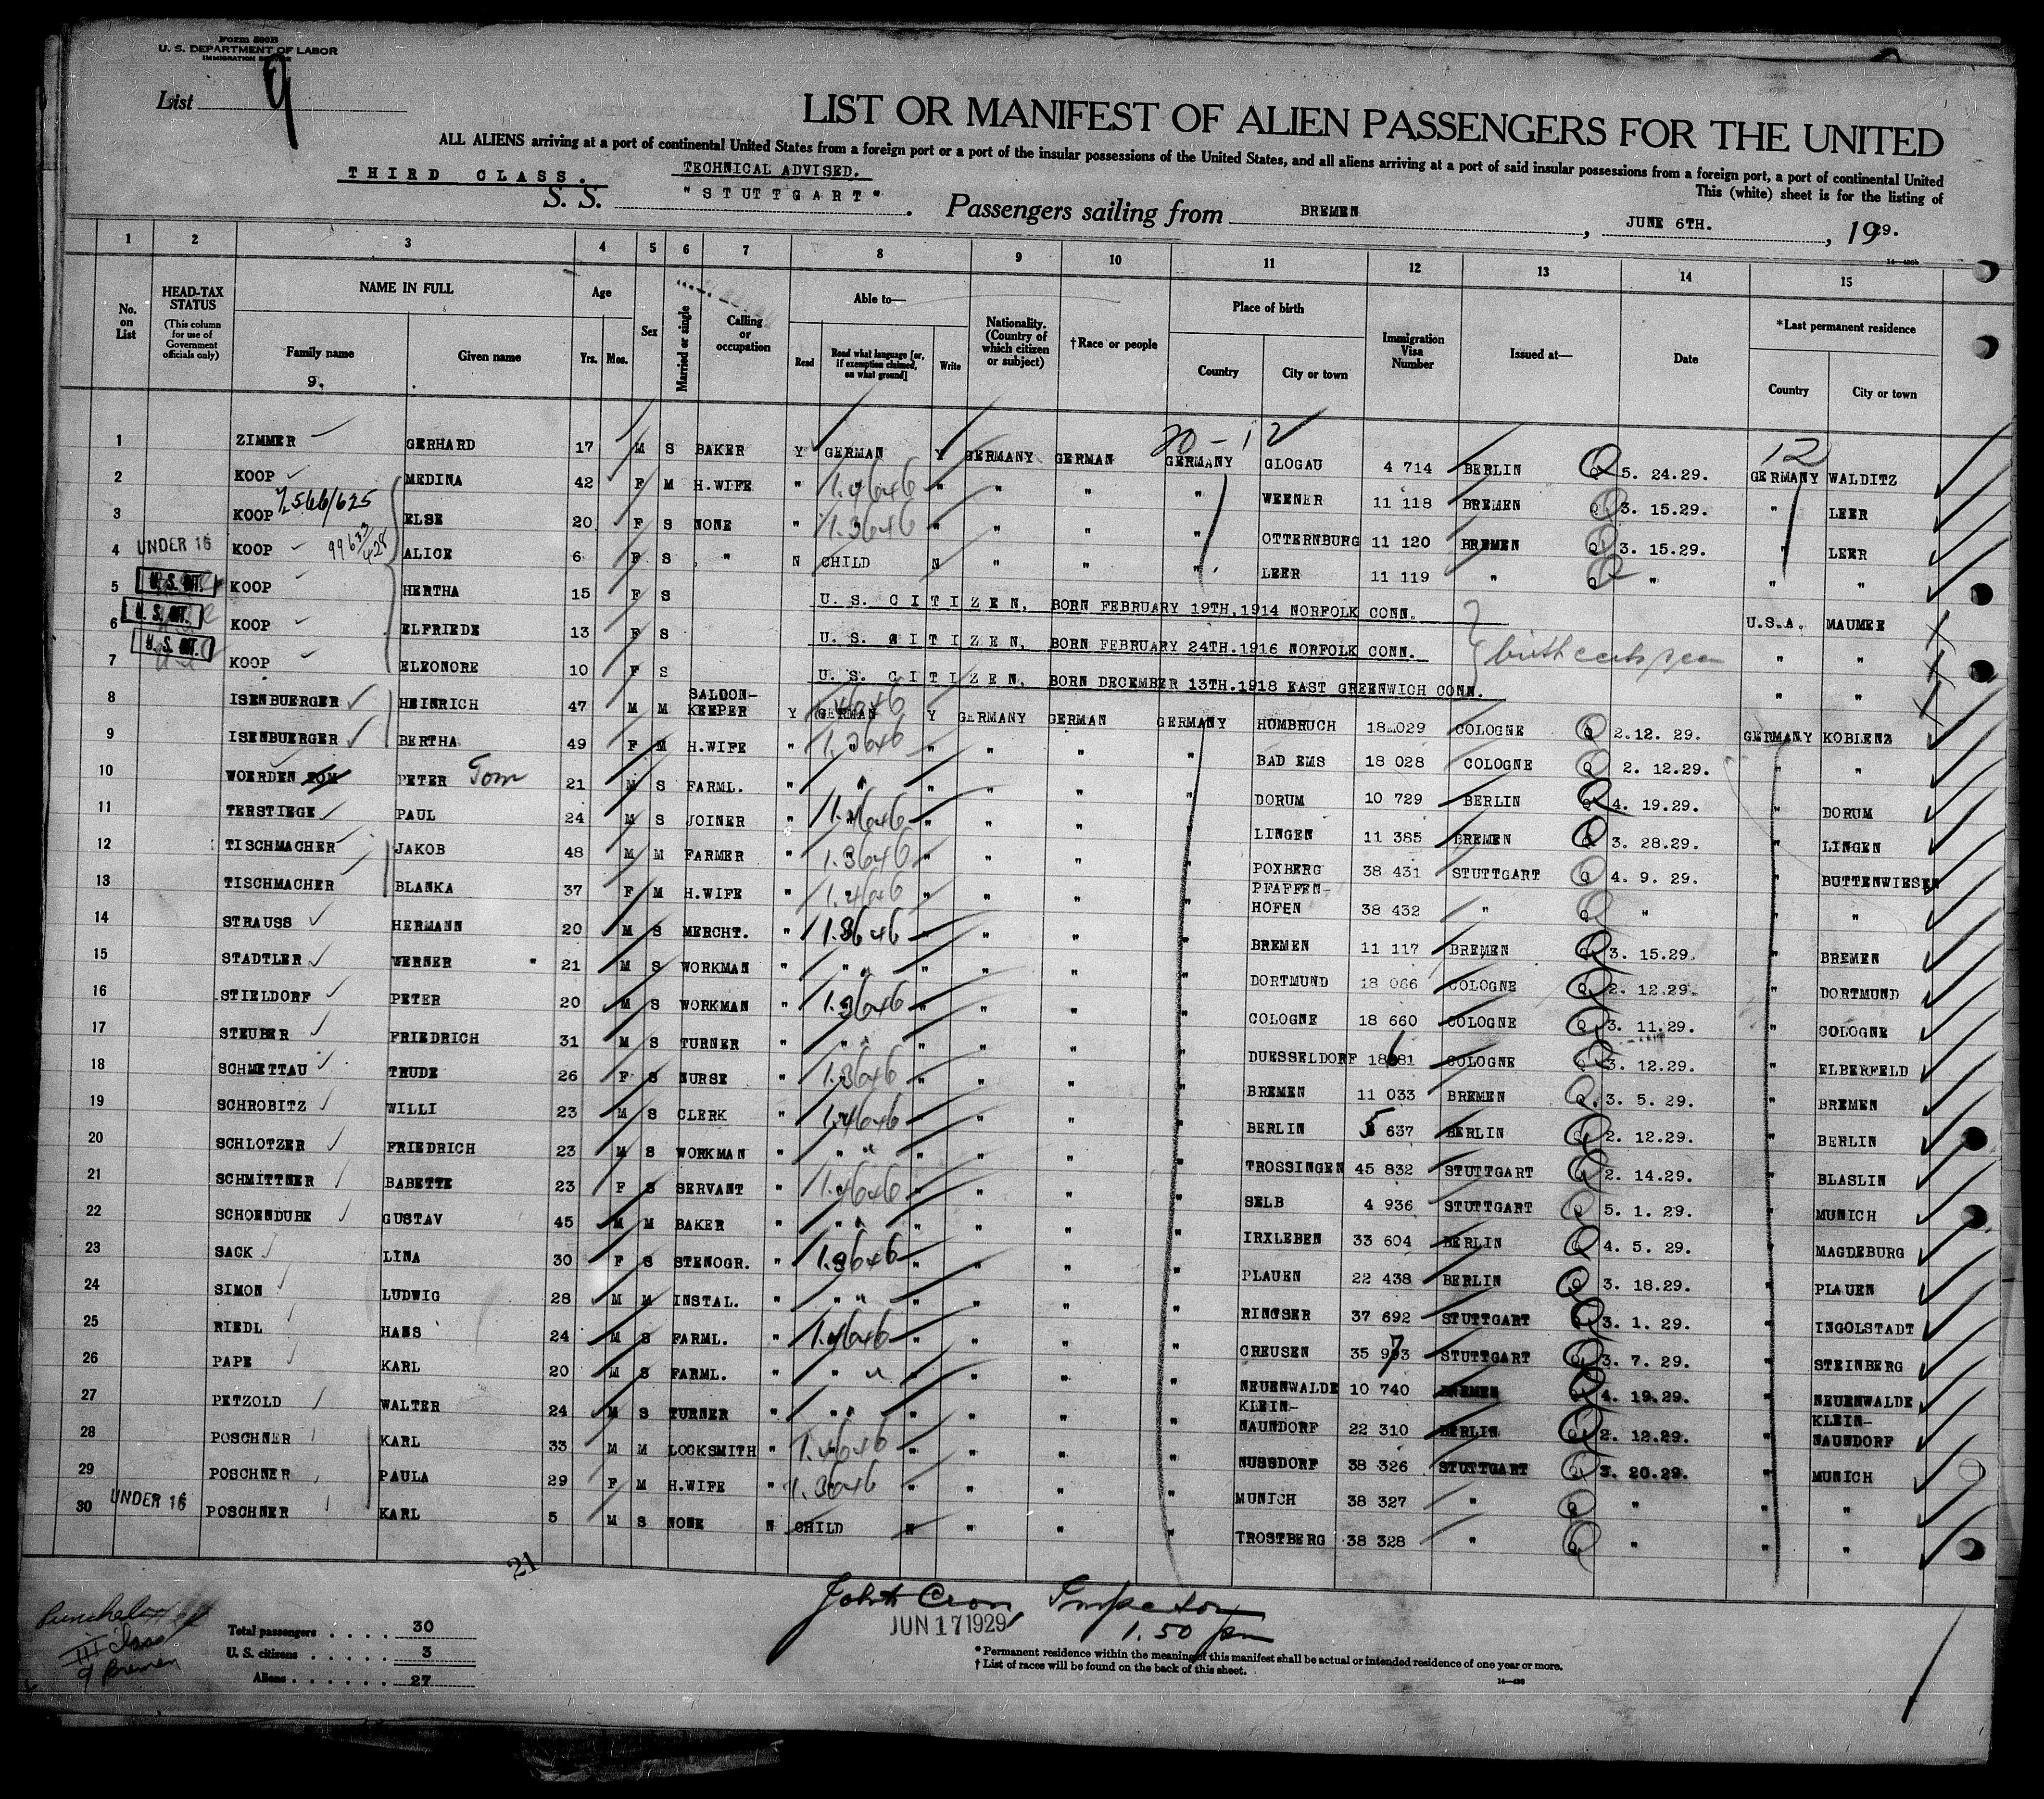 Form 500B
U. S. DEPARTMENT OF LABOR
IMMIGRATION SERVICE
List 9
LIST OR MANIFEST OF ALIEN PASSENGERS FOR THE UNITED
ALL ALIENS arriving at a port of continental United States from a foreign port or a port of the insular possessions of the United States, and all aliens arriving at a port of said insular possessions from a foreign port, a port of continental United
This (white) sheet is for the listing of
THIRD CLASS. TECHNICAL ADVISED.
S. S. "STUTTGART". Passengers sailing from BREMEN, JUNE 6TH., 1929.
1 2 3 4 5 6 7 8 9 10 11 12 13 14 15
No. on List
HEAD-TAX STATUS (This column for use of Government officials only)
NAME IN FULL
Family name
Given name
9.
Age
Yrs. Mos.
Sex
Married or single
Calling or occupation
Able to—
Read
Read what language [or, if exemption claimed, on what ground]
Write
Nationality. (Country of which citizen or subject)
†Race or people
Place of birth
Country
City or town
Immigration Visa Number
Issued at—
Date
*Last permanent residence
Country
City or town
20-12
12
1 ZIMMER GERHARD 17 M S BAKER Y GERMAN Y GERMANY GERMAN GERMANY GLOGAU 4 714 BERLIN 5. 24.29. GERMANY WALDITZ
2 KOOP MEDINA 42 F M H.WIFE " " " " " " WEENER 11 118 BREMEN 3. 15.29. " LEER
3 KOOP ELSE 20 F S NONE " " " " " " OTTERNBURG 11 120 BREMEN 3. 15.29. " LEER
4 UNDER 16 KOOP ALICE 6 F S " N CHILD N " " " LEER 11 119 " " " "
5 U.S. CIT. KOOP HERTHA 15 F S U.S. CITIZEN, BORN FEBRUARY 19TH,1914 NORFOLK CONN. U.S.A. MAUMEE
6 U.S. CIT. KOOP ELFRIEDE 13 F S U.S. CITIZEN, BORN FEBRUARY 24TH.1916 NORFOLK CONN. " "
7 U.S. CIT. KOOP ELEONORE 10 F S U.S. CITIZEN, BORN DECEMBER 13TH.1918 EAST GREENWICH CONN. " "
8 ISENBUERGER HEINRICH 47 M M SALOON-KEEPER Y GERMAN Y GERMANY GERMAN GERMANY HOMBRUCH 18 029 COLOGNE 2.12. 29. GERMANY KOBLENZ
9 ISENBUERGER BERTHA 49 F M H.WIFE " " " " " " BAD EMS 18 028 COLOGNE 2. 12.29. " "
10 WOERDEN TOM PETER Tom 21 M S FARML. " " " " " " DORUM 10 729 BERLIN 4. 19.29. " DORUM
11 TERSTIEGE PAUL 24 M S JOINER " " " " " " LINGEN 11 385 BREMEN 3. 28.29. " LINGEN
12 TISCHMACHER JAKOB 48 M M FARMER " " " " " " POXBERG 38 431 STUTTGART 4. 9. 29. " BUTTENWIESEN
13 TISCHMACHER BLANKA 37 F M H.WIFE " " " " " " PFAFFEN-HOFEN 38 432 " " " "
14 STRAUSS HERMANN 20 M S MERCHT. " " " " " " BREMEN 11 117 BREMEN 3. 15.29. " BREMEN
15 STADTLER WERNER 21 M S WORKMAN " " " " " " DORTMUND 18 066 COLOGNE 2. 12.29. " DORTMUND
16 STIELDORF PETER 20 M S WORKMAN " " " " " " COLOGNE 18 660 COLOGNE 3. 11.29. " COLOGNE
17 STEUBER FRIEDRICH 31 M S TURNER " " " " " " DUESSELDORF 18681 COLOGNE 3. 12.29. " ELBERFELD
18 SCHMETTAU TRUDE 26 F S NURSE " " " " " " BREMEN 11 033 BREMEN 3. 5. 29. " BREMEN
19 SCHROBITZ WILLI 23 M S CLERK " " " " " " BERLIN 5 637 BERLIN 2. 12.29. " BERLIN
20 SCHLOTZER FRIEDRICH 23 M S WORKMAN " " " " " " TROSSINGEN 45 832 STUTTGART 2. 14.29. " BLASLIN
21 SCHMITTNER BABETTE 23 F S SERVANT " " " " " " SELB 4 936 STUTTGART 5. 1. 29. " MUNICH
22 SCHOENDUBE GUSTAV 45 M M BAKER " " " " " " IRXLEBEN 33 604 BERLIN 4. 5. 29. " MAGDEBURG
23 SACK LINA 30 F S STENOGR. " " " " " " PLAUEN 22 438 BERLIN 3. 18.29. " PLAUEN
24 SIMON LUDWIG 28 M M INSTAL. " " " " " " RINGSER 37 692 STUTTGART 3. 1. 29. " INGOLSTADT
25 RIEDL HANS 24 M S FARML. " " " " " " CREUSEN 35 973 STUTTGART 3. 7. 29. " STEINBERG
26 PAPE KARL 20 M S FARML. " " " " " " NEUENWALDE 10 740 BREMEN 4. 19.29. " NEUENWALDE
27 PETZOLD WALTER 24 M S TURNER " " " " " " KLEIN-NAUNDORF 22 310 BERLIN 2. 12.29. " KLEIN-NAUNDORF
28 POSCHNER KARL 33 M M LOCKSMITH " " " " " " NUSSDORF 38 326 STUTTGART 3. 20.29. " MUNICH
29 POSCHNER PAULA 29 F M H.WIFE " " " " " " MUNICH 38 327 " " " "
30 UNDER 16 POSCHNER KARL 5 M S NONE N CHILD N " " " TROSTBERG 38 328 " " " "
21
III Class
9 Bremen
Total passengers . . . . 30
U. S. citizens . . . . . 3
Aliens . . . . . . 27
John Cron Inspector
JUN 17 1929
1.50 pm
* Permanent residence within the meaning of this manifest shall be actual or intended residence of one year or more.
† List of races will be found on the back of this sheet.